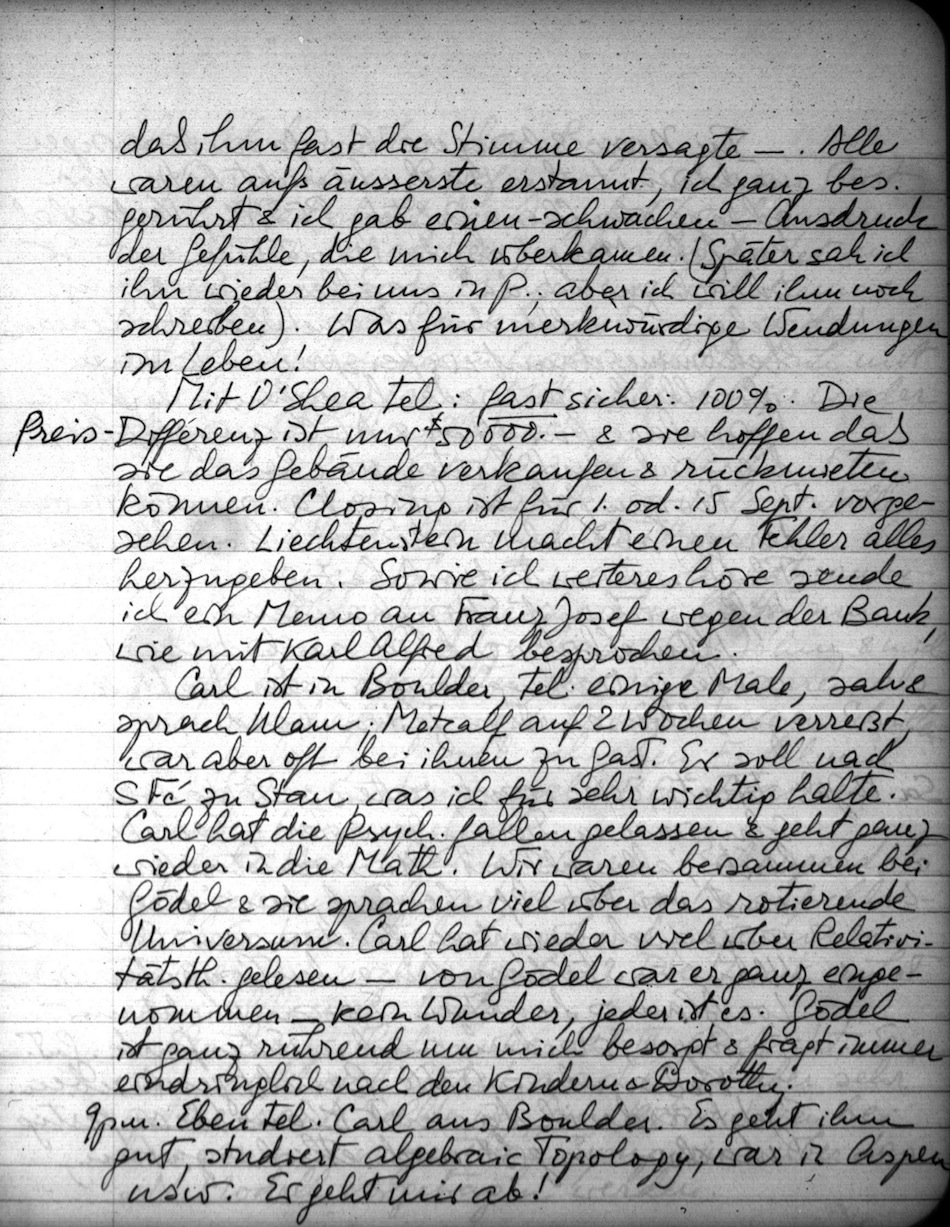 daß ihm fast die Stimme versagte —. Alle
waren aufs äusserste erstaunt, ich ganz bes.
gerührt & ich gab einen – schwachen – Ausdruck
der Gefühle, die mich überkamen. (Später sah ich
ihn wieder bei uns in P.; aber ich will ihm noch
schreiben). Was für merkwürdige Wendungen
im Leben!
Mit O'Shea tel.: fast sicher: 100%. Die
Preis-Differenz ist nur $50000.– & sie hoffen daß
sie das Gebäude verkaufen & rückmieten
können. Closing ist für 1. od. 15 Sept. vorge-
sehen. Liechtenstein macht einen Fehler alles
herzugeben. Sowie ich weiteres höre sende
ich ein Memo an Franz Josef wegen der Bank,
wie mit Karl Alfred besprochen.
Carl ist in Boulder, tel. einige Male, sah &
sprach Ulam; Metcalf auf 2 Wochen verreist,
war aber oft bei ihnen zu Gast. Er soll nach
S Fé zu Stan, was ich für sehr wichtig halte.
Carl hat die Psych. fallen gelassen & geht ganz
wieder in die Math. Wir waren beisammen bei
Gödel & sie sprachen viel über das rotierende
Universum. Carl hat wieder viel über Relativi-
tätsth. gelesen — von Gödel war er ganz einge-
nommen — kein Wunder, jeder ist es. Gödel
ist ganz rührend um mich besorgt & frägt immer
eindringlich nach den Kindern & Dorothy.
9pm. Eben tel. Carl aus Boulder. Es geht ihm
gut, studiert algebraic Topology, war in Aspen
usw. Er geht mir ab!